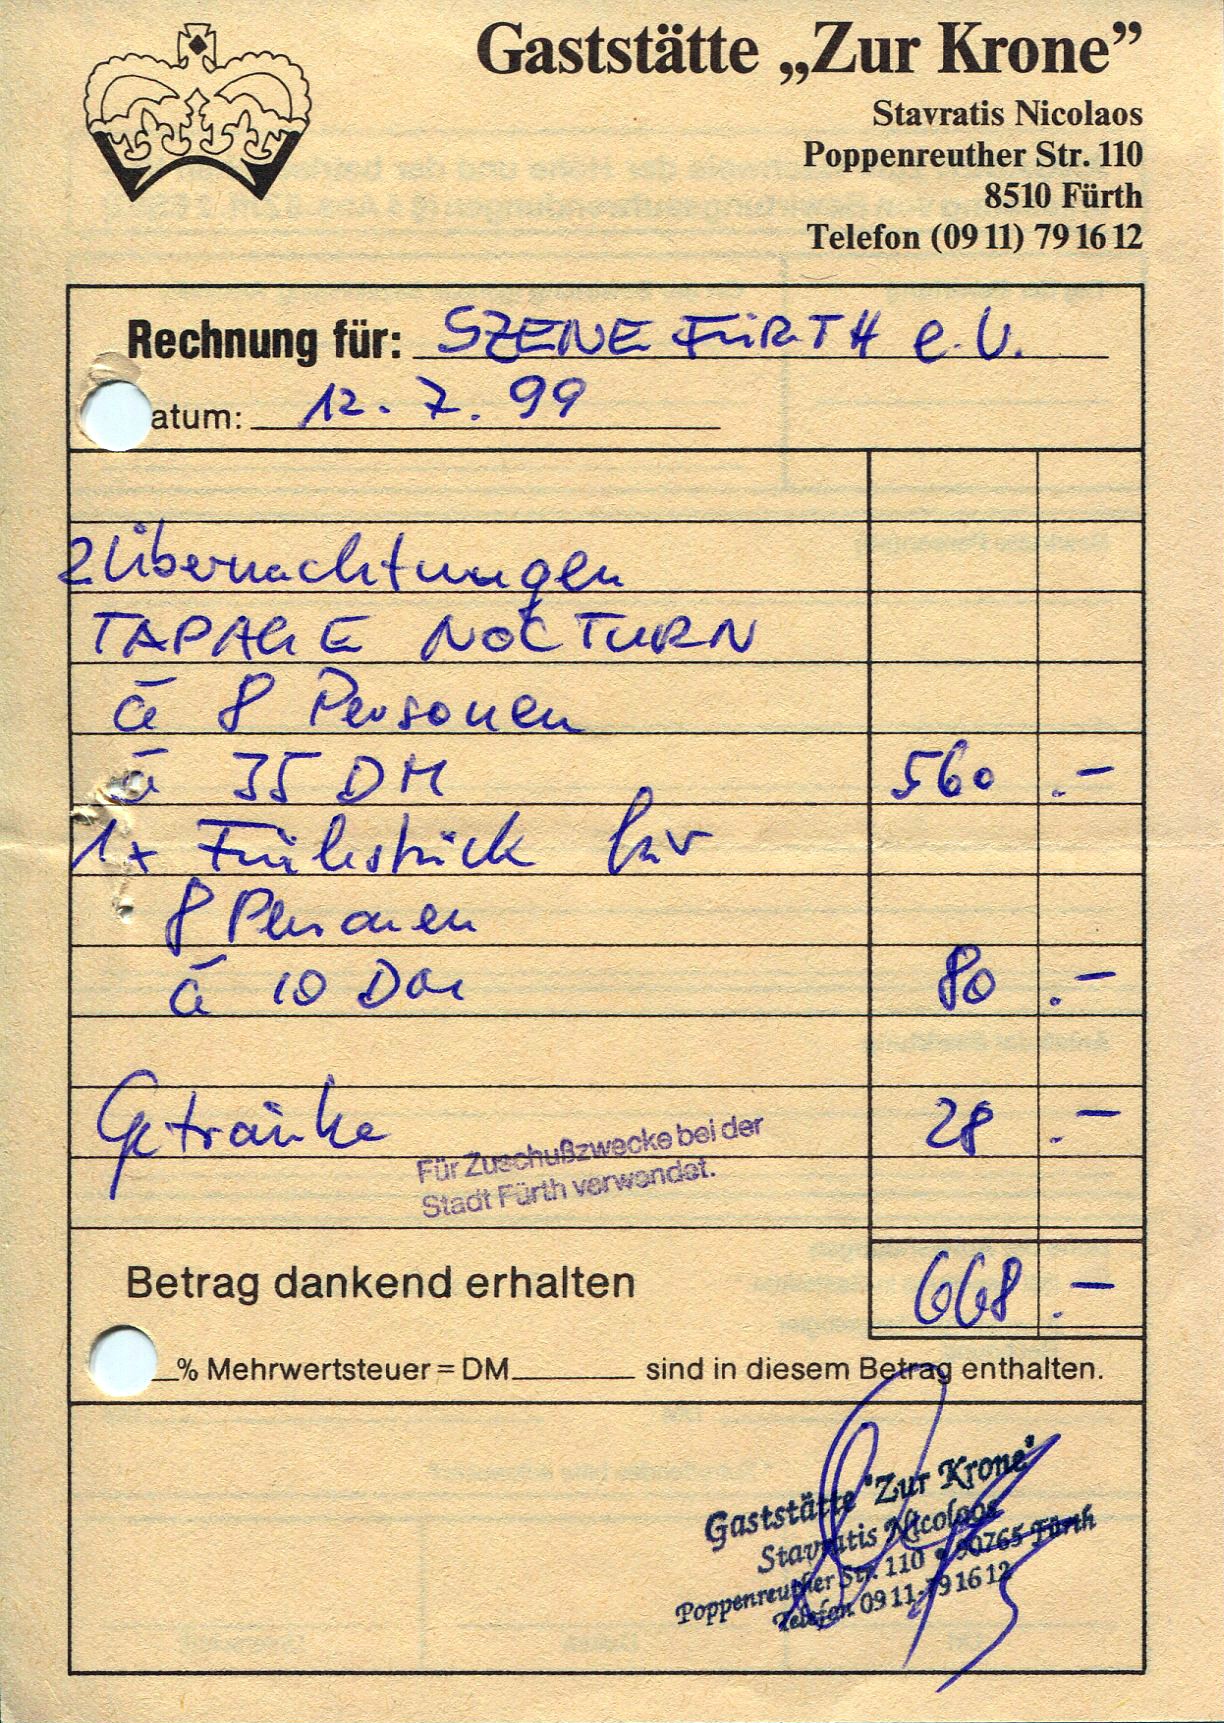 Gaststätte „Zur Krone”
Stavratis Nicolaos
Poppenreuther Str. 110
8510 Fürth
Telefon (09 11) 79 16 12
Rechnung für: SZENE FÜRTH e.V.
atum: 12. 7. 99
2 Übernachtungen
TAPAGE NOCTURN
à 8 Personen
à 35 DM 560 .–
1x Frühstück für
8 Personen
à 10 DM 80 .–
Getränke 28 .–
Für Zuschußzwecke bei der
Stadt Fürth verwendet.
Betrag dankend erhalten 668 .–
% Mehrwertsteuer = DM sind in diesem Betrag enthalten.
Gaststätte "Zur Krone"
Stavratis Nicolaos
Poppenreuther Str. 110 • 90765 Fürth
Telefon 09 11-79 16 12